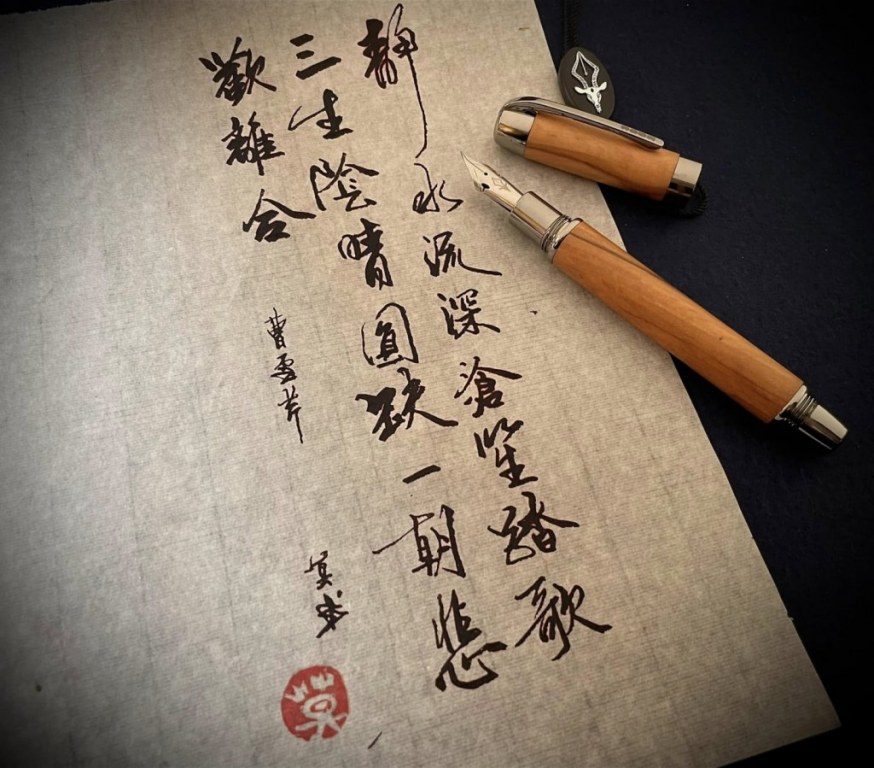 靜水流深滄笙踏歌
三生陰晴圓缺一朝悲
歡離合
曹雪芹